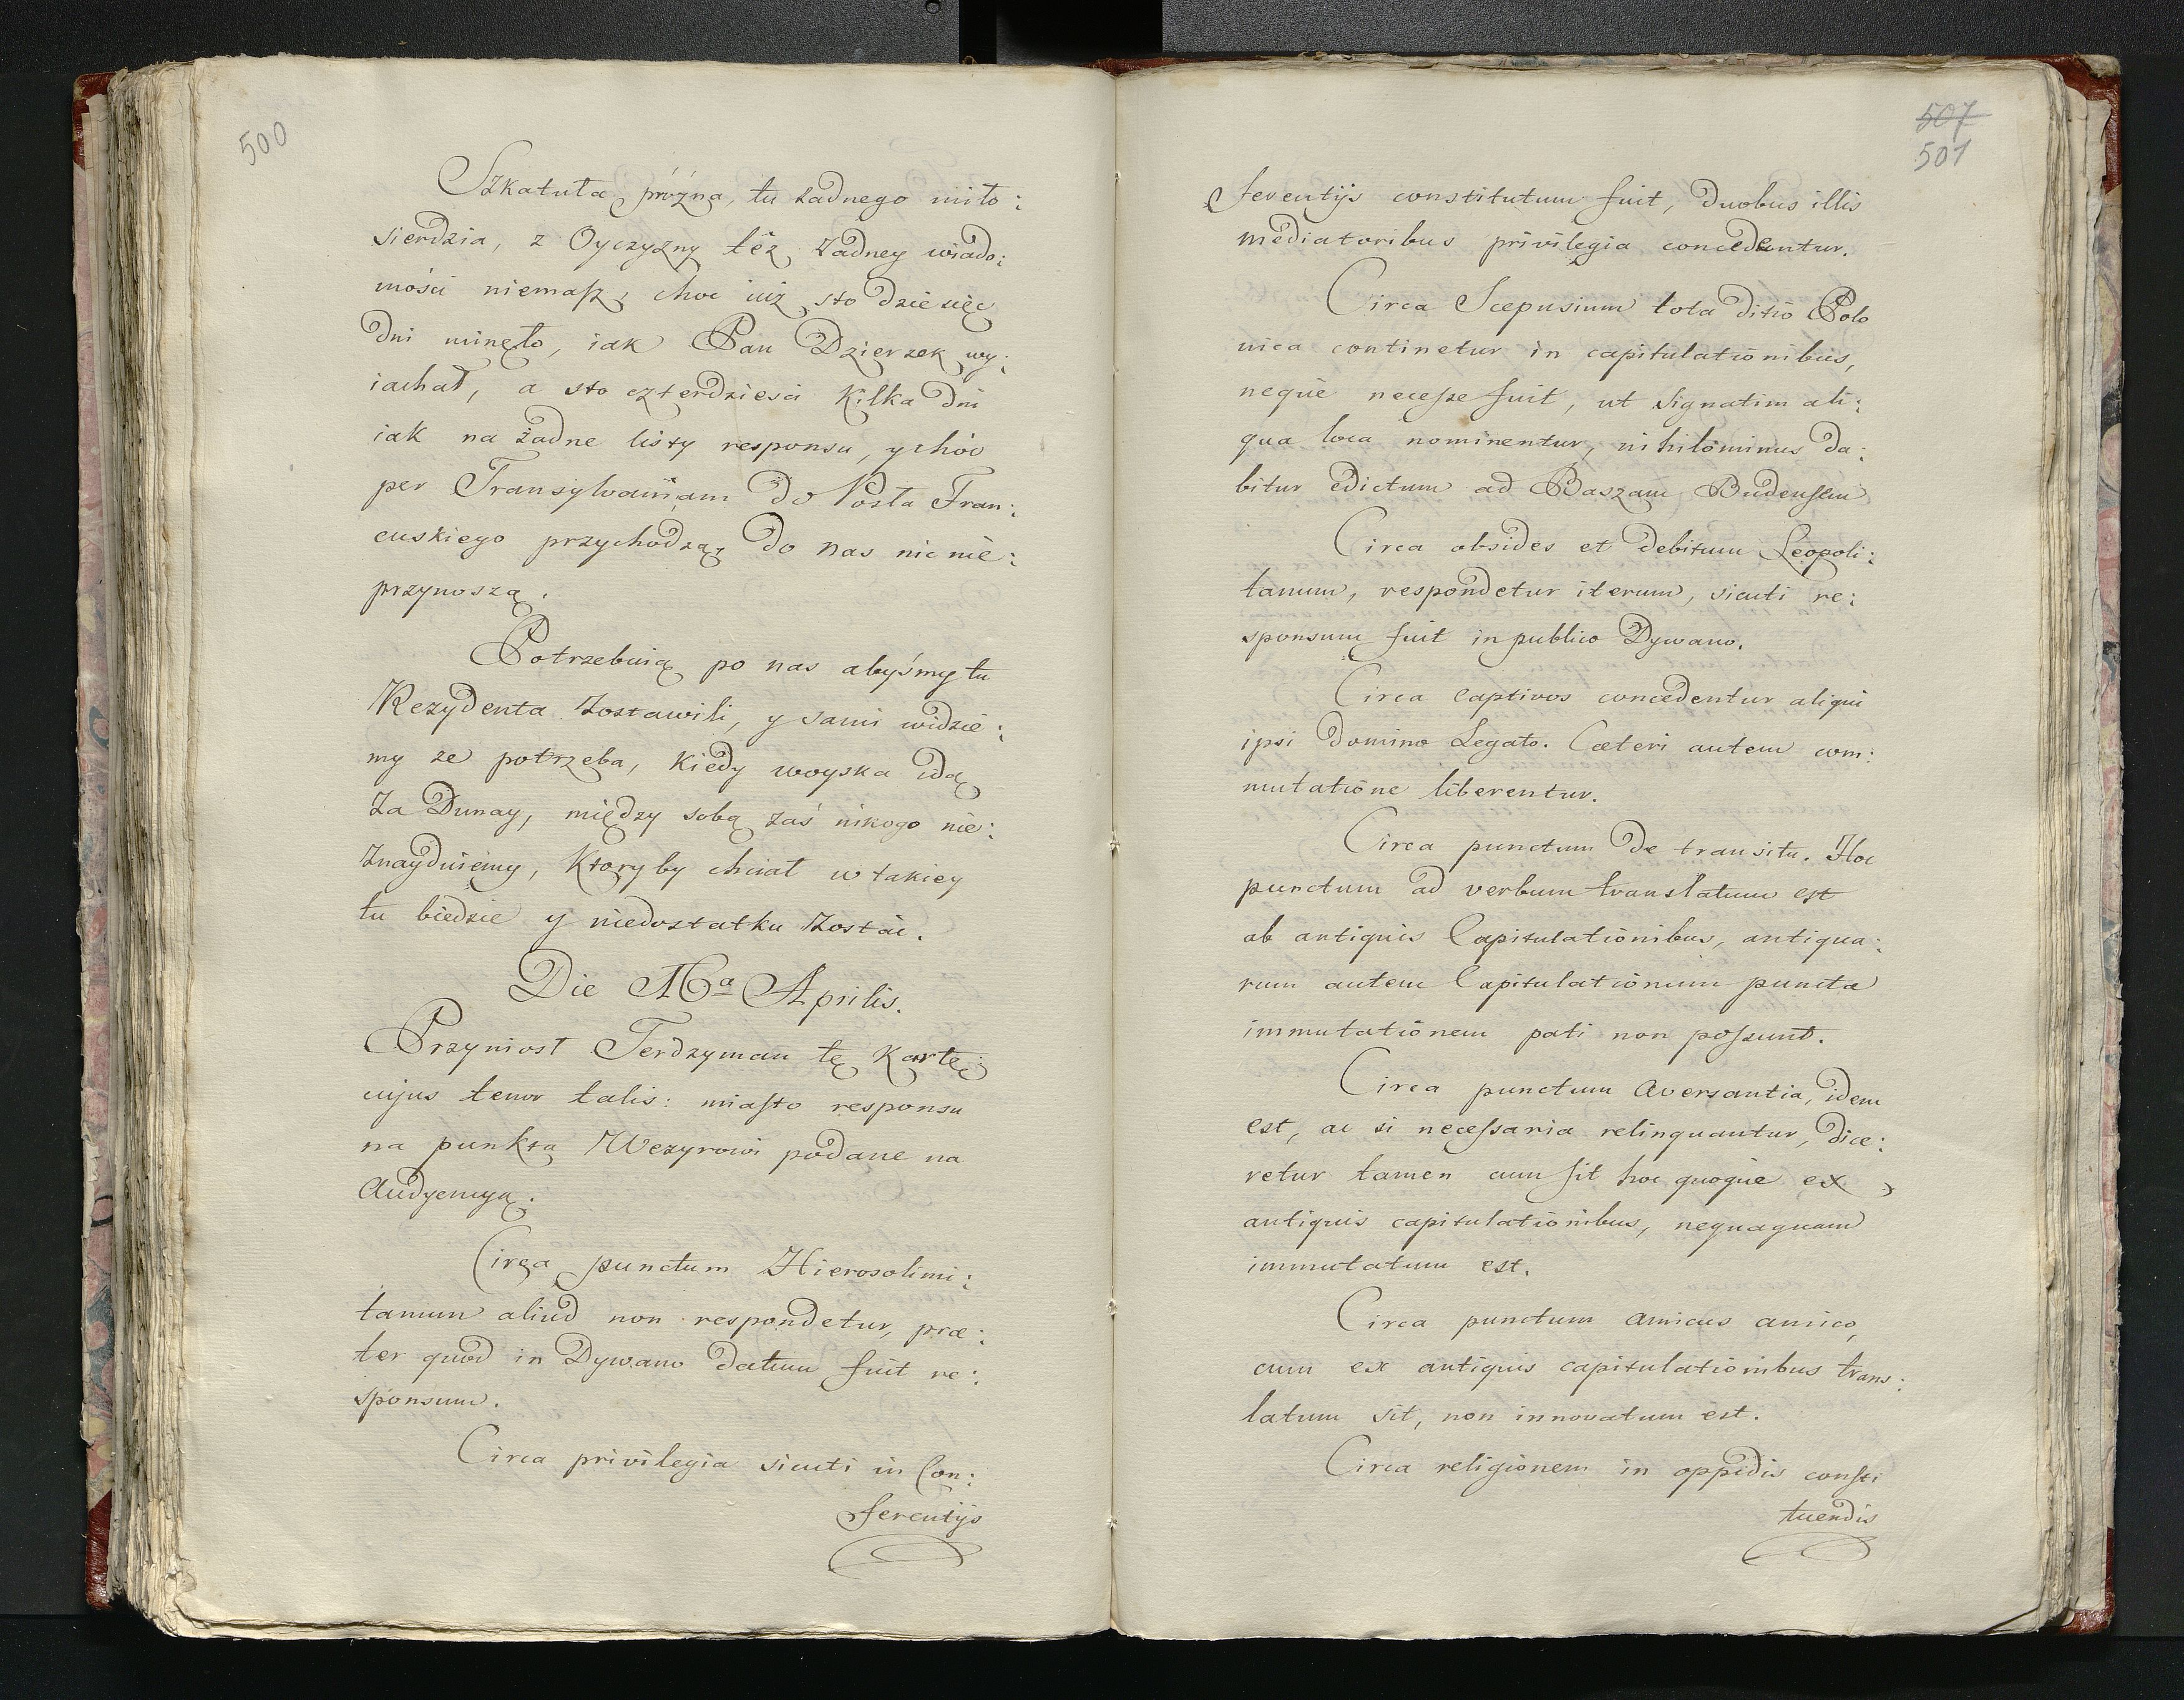 500
Szkatuła próżna, tu żadnego miło:
sierdzia, z Oyczyzny też żadney wiado:
mości niemasz, choc iuż sto dziesięć
dni minęło, iak Pan Dzierzek wy:
iachał, a sto czterdzieści kilka dni
iak na żadne listy responsu, y choć
per Transylvaniam do Posła Fran:
cuskiego przychodzą, do nas nic nie:
przynoszą.
Potrzebuią po nas abyśmy tu
Rezydenta zostawili, y sami widzie:
my że potrzeba, kiedy woyska idą
za Dunay, między sobą zaś nikogo nie:
znayduiemy, ktoryby chciał w takiey
tu biedzie y niedostatku zostać.
Die Aprilis.
Przyniosł Terdzyman tę kartę
cujus tenor talis: miasto responsu
na punkta Wezyrowi podane na
Audyencyą.
Circa punctum Hierosolimi:
tanum aliud non respondetur, præ:
ter quod in Dywano datum fuit re:
sponsum.
Circa privilegia sicuti in Con:
ferentijs
507
501
ferentijs constitutum fuit, duobus illis
mediatoribus privilegia concedentur.
Circa Scepusium tota ditio Polo
nica continetur in capitulationibus,
neque necesse fuit, ut signatim ali:
qua loca nominentur, nihilominus da:
bitur edictum ad Baszam Budensem
Circa obsides et debitum Leopoli:
tanum, respondetur iterum, sicuti re:
sponsum fuit in publico Dywano.
Circa captivos concedentur aliqui
ipsi Domino Legato. Cæteri autem com:
mutatione liberentur.
Circa punctum de transitu. Hoc
punctum ad verbum translatum est
ab antiquis Capitulationibus, antiqua:
rum autem Capitulationum puncta
immutationem pati non possunt.
Circa punctum aversantia, idem
est, ac si necessaria relinquantur, dice:
retur tamen cum sit hoc quoque ex
antiquis capitulationibus, nequaquam
immutatum est.
Circa punctum amicus amico,
cum ex antiquis capitulationibus trans:
latum sit, non innovatum est.
Circa religionem in oppidis consti
tuendis